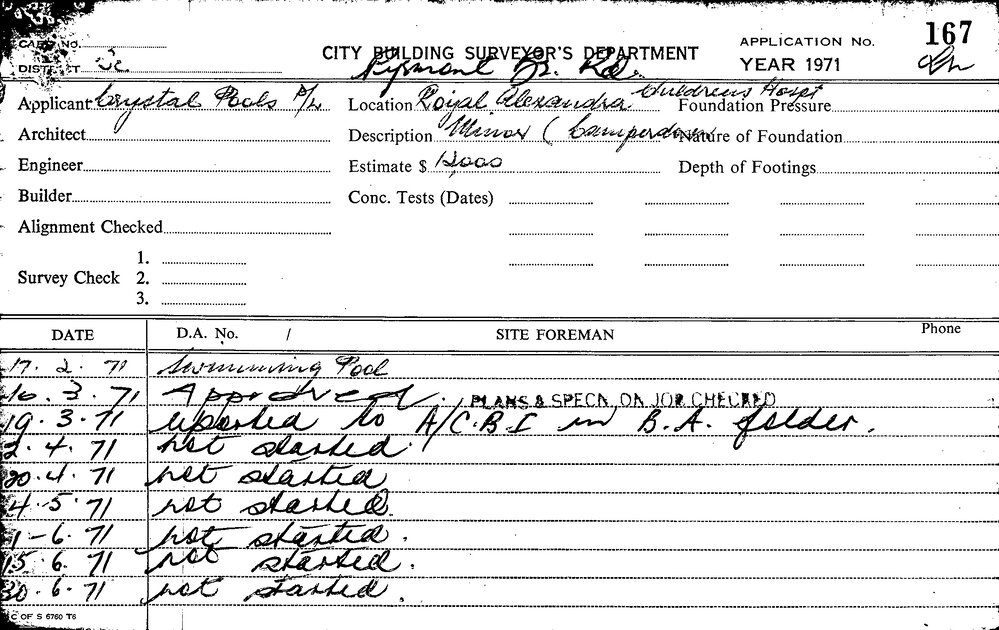 CARD No. APPLICATION No. 167
CITY BUILDING SURVEYOR'S DEPARTMENT
DISTRICT YEAR 1971
Pyrmont Br. Rd.
Applicant Crystal Pools P/L Location Royal Alexandra Childrens Hospt Foundation Pressure
Architect Description Minor (Camperdown Nature of Foundation
Engineer Estimate $ Depth of Footings
Builder Conc. Tests (Dates)
Alignment Checked
1.
Survey Check 2.
3.
DATE D.A. No. / SITE FOREMAN Phone
17. 2. 71 Swimming Pool
16. 3. 71 Approved. PLANS & SPECN. ON JOB CHECKED
19. 3. 71 reported to A/C.B.I in B.A. folder.
2. 4. 71 not started
20. 4. 71 not started
4. 5. 71 not started.
1-6. 71 not started.
15. 6. 71 not started.
30. 6. 71 not started.
C OF S 6760 T6